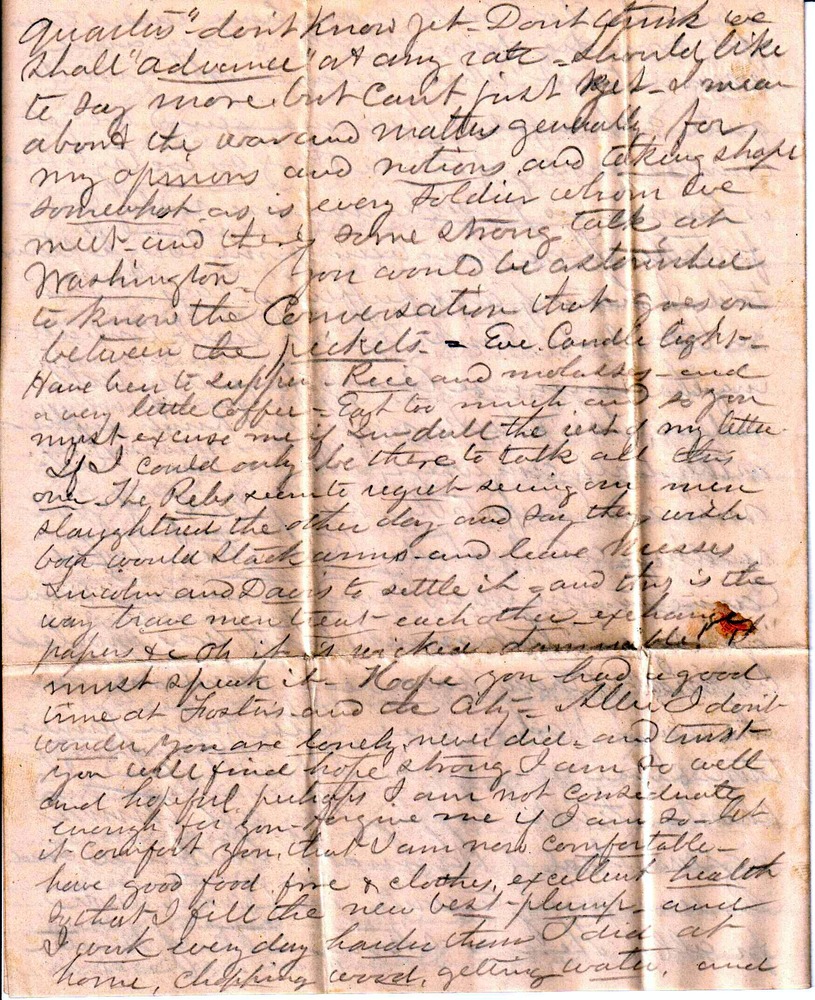 quarters" don't know yet - Don't think we
shall "advance" at any rate - should like
to say more but can't just yet - I mean
about the war and matters generally for
my opinions and notions and taking shape
somewhat as is every soldier whom we
meet - and there's some strong talk at
Washington - You would be astonished
to know the Conversation that goes on
between the pickets - = Eve. Candle light -
Have been to supper - Rice and molasses - and
a very little Coffee - Eat too much and so you
must excuse me if I'm dull the rest of my letter
If I could only be there to talk all this
over The Rebs seem to regret seeing our men
slaughtred the other day and say they wish
both would Stack arms and leave Messrs
Lincoln and Davis to settle it - and this is the
way brave men treat each other - exchange
papers &c Oh it is wicked damnable!
must speak it - Hope you had a good
time at Foster's and the City = Allie I don't
wonder you are lonely, never did - and trust
you will find hope strong I am so well
and hopeful, perhaps I am not considerate
enough for you - forgive me if I am so - let
it comfort you, that I am now comfortable -
have good food fire & clothes, excellent health
so that I fill the new vest plump - and
I work every day harder than I did at
home, chopping wood, getting water, and